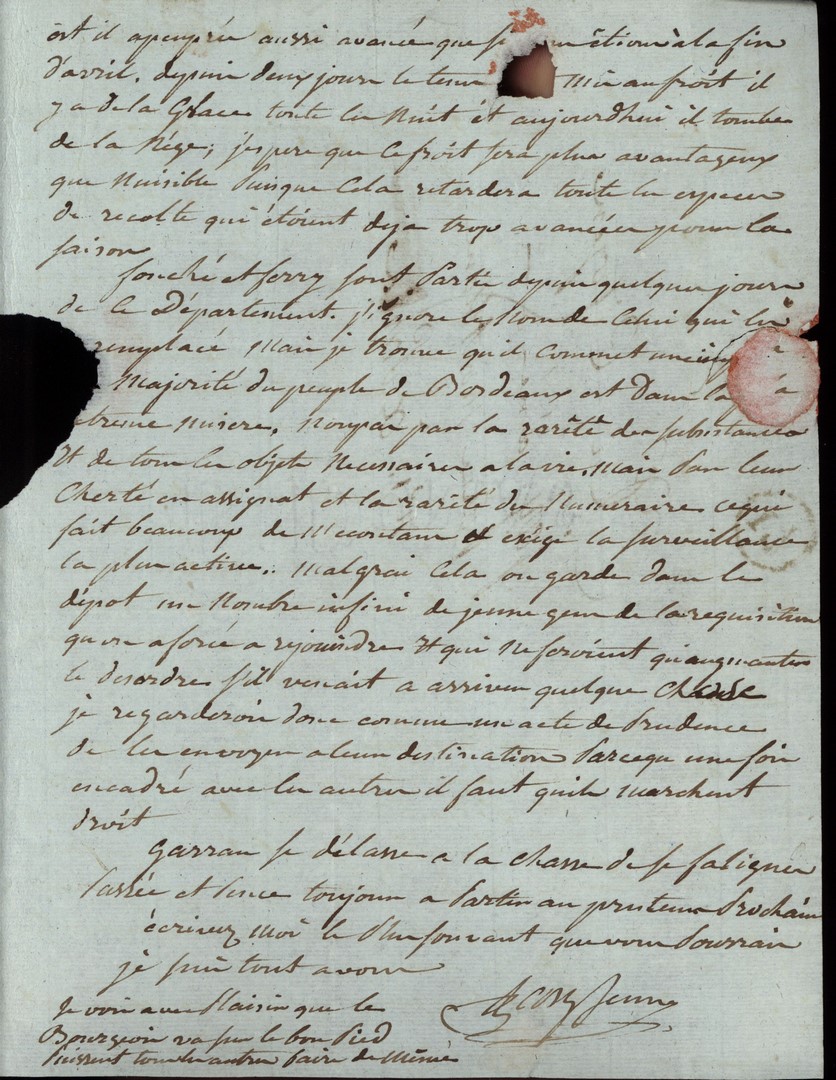 est il apeuprée aussi avancée que se etion à la fin
d'avril. depuis deux jours le tems mis au froit il
y a de la Glace toute les Nuit et aujourdhui il tombe
de la Nége, j'espere que ce froit sera plus avantageux
que Nuisible Puisque Cela retardera toute les especes
de recolte qui étoient deja trop avancées pour la
saison
fouché et ferry sont Partis depuis quelques jours
de ce Département. j'ignore le Nom de Celui qui les
remplacé Mais je trouve qu'il commet une
Majorité du peuple de Bordeaux est Dans la
Misere, Nonpas par la rareté des substances
Et de tous les objets Necessaires a la vie, mais Par leur
Cherté en assignat et la rareté du Numeraire ce qui
fait beaucoup de Mecontans et exige la surveillance
la plus active.. Malgrai Cela on garde dans le
dépot un Nombre infini de jeune gens de la requisition
qu'on a forcé a rejoindre Et qui ne feroient qu'augmanter
le desordre s'il venait a arriver quelque Chause
je regarderois donc comme un acte de Prudence
de les envoyer a leur destination Parcequ une fois
encadré avec les autres il faut quils marchent
droit
Garrau se délasse a la chasse de se fatigues
Passée et Pence toujours a Partir au printems Prochain
écrivez Moi le Plus souvant que vous Pourrais
je suis tout a vous
Je vois avec Plaisir que le
Bourgeois va sur le bon Pied
Puissent tous les autres faire de Même
Jeune